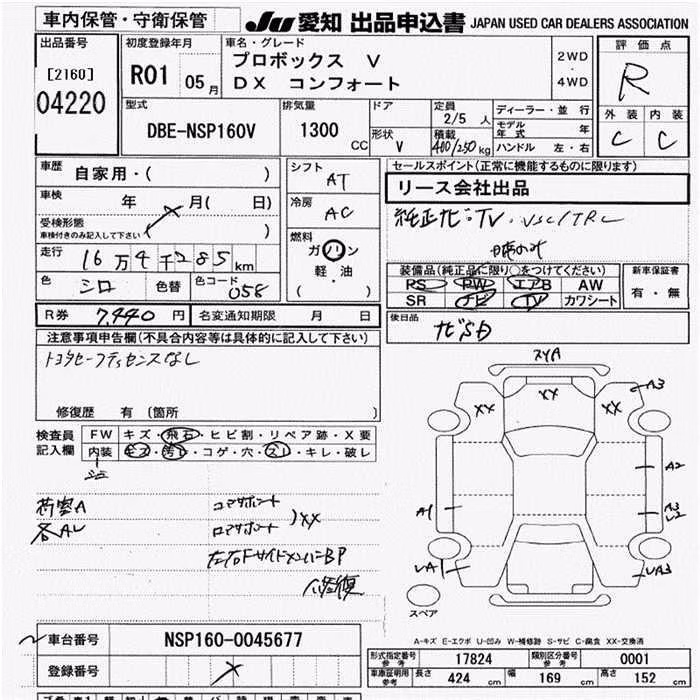 車内保管・守衛保管
JU 愛知 出品申込書 JAPAN USED CAR DEALERS ASSOCIATION
出品番号
[2160]
04220
初度登録年月
R01 05月
車名・グレード
プロボックス V
DX コンフォート
2WD
・
4WD
評価点
R
外装 内装
C C
型式
DBE-NSP160V
排気量
1300
CC
ドア
形状
V
定員
2/5 人
積載
400/250 kg
ディーラー・並行
モデル年式 年
ハンドル 左・右
車歴
自家用・( )
車検
年 月( 日)
受検形態
車検付きのみ記入して下さい ( )
走行
16万4千285km
色 シロ 色替 色コード 058
シフト
AT
冷房
AC
燃料
ガソリン
軽・油
( )
セールスポイント(正常に機能するものに限ります)
リース会社出品
純正ナビ・TV・VSC/TRC
装備品(純正品に限り○をつけてください)
PS PW エアB AW
SR ナビ TV カワシート
新車保証書
有・無
R券 7,440 円 名変通知期限 月 日
後日品
ナビSD
注意事項申告欄(不具合内容等は具体的に記入して下さい)
トヨタセーフティセンスなし
修復歴 有 (箇所 )
検査員
記入欄
FW キズ・飛石・ヒビ割・リペア跡・X要
内装 キズ・汚れ・コゲ・穴・スレ・キレ・破レ
シミ
荷室A
各AU
コアサポート
ロアサポート
)XX
左右FサイドメンバーBP
修復
スリA
XX
XX
XX
A3
A2
A3
U2
A1
UA1
UA3
スペア
車台番号 NSP160-0045677
登録番号
A-キズ E-エクボ U-凹み W-補修跡 S-サビ C-腐食 XX-交換済
形式指定番号 参考 17824 類別区分番号 参考 0001
車庫証明用 参考 長さ 424 cm 幅 169 cm 高さ 152 cm